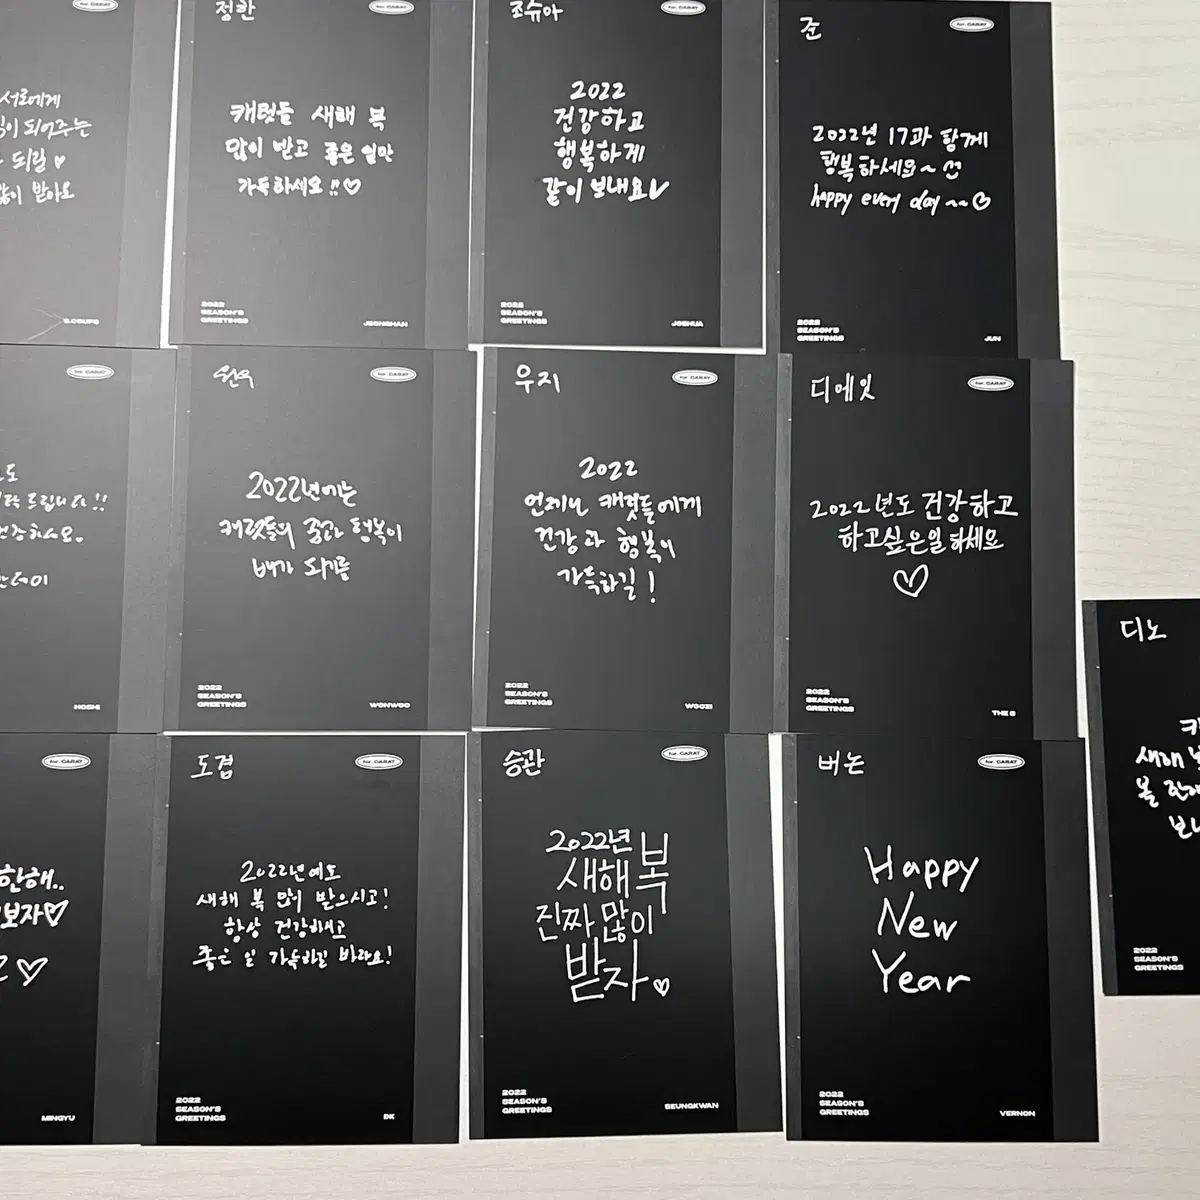 for. CARAT
서로에게
되어주는
되길 ♡
많이 받아요
S.COUPS
정한
for. CARAT
캐럿들 새해 복
많이 받고 좋은 일만
가득하세요!!♡
2022
SEASON'S
GREETINGS
JEONGHAN
조슈아
for. CARAT
2022
건강하고
행복하게
같이 보내요
2022
SEASON'S
GREETINGS
JOSHUA
준
for. CARAT
2022년 17과 함께
행복하세요~
happy every day ~~♡
2022
SEASON'S
GREETINGS
JUN
for. CARAT
도
드립니다!!
건강하세요.
HOSHI
원우
for. CARAT
2022년에는
캐럿들의 건강과 행복이
배가 되기를
2022
SEASON'S
GREETINGS
WONWOO
우지
for. CARAT
2022
언제나 캐럿들에게
건강과 행복이
가득하길!
2022
SEASON'S
GREETINGS
WOOZI
디에잇
for. CARAT
2022년도 건강하고
하고싶은일 하세요
♡
2022
SEASON'S
GREETINGS
THE 8
for. CARAT
한해..
보자♡
♡
MINGYU
도겸
for. CARAT
2022년에도
새해 복 많이 받으시고!
항상 건강하시고
좋은 일 가득하길 바라요!
2022
SEASON'S
GREETINGS
DK
승관
for. CARAT
2022년
새해 복
진짜 많이
받자.♡
2022
SEASON'S
GREETINGS
SEUNGKWAN
버논
for. CARAT
Happy
New
Year
2022
SEASON'S
GREETINGS
VERNON
디노
새해
올 한해
2022
SEASON'S
GREETINGS